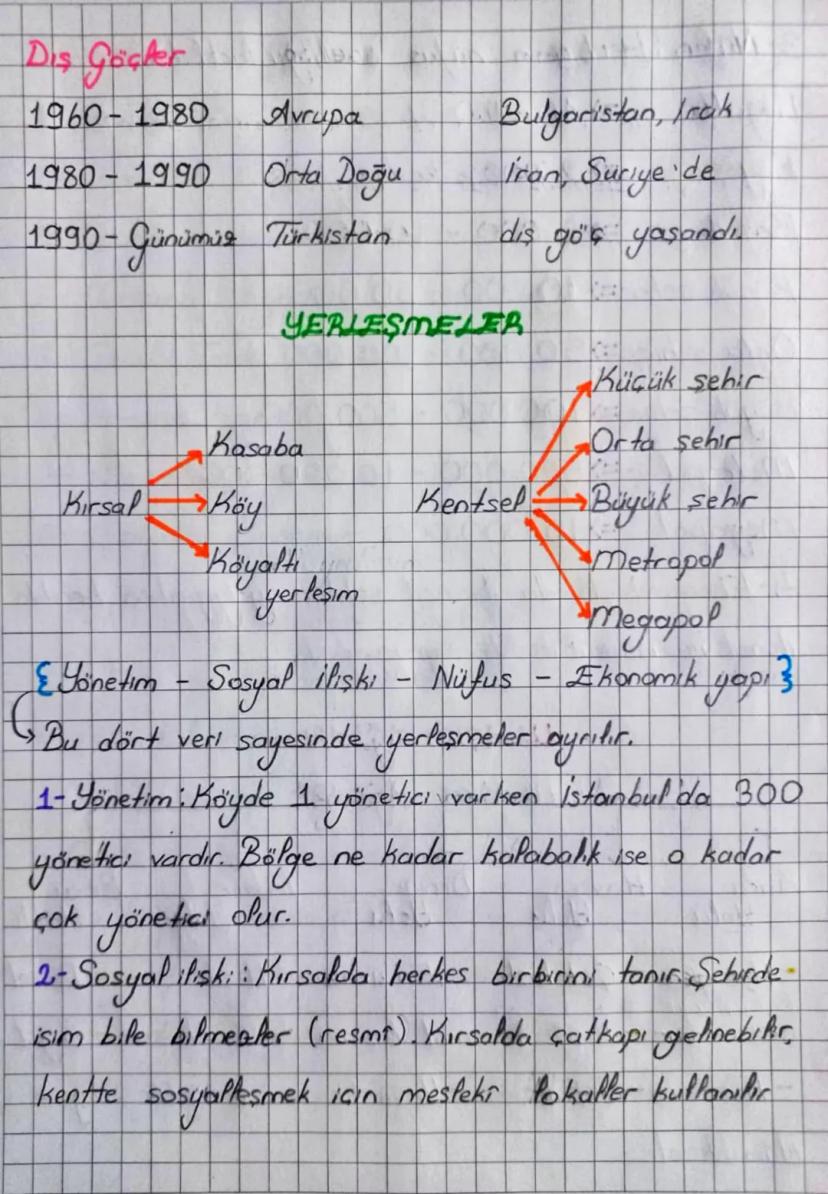 Dış Göçler
1960 - 1980 Avrupa Bulgaristan, Irak
1980 - 1990 Orta Doğu İran, Suriye'de
1990 - Günümüz Türkistan dış göç yaşandı.
YERLEŞMELER
Kırsal
Kasaba
Köy
Köyaltı
yerleşim
Kentsel
Küçük şehir
Orta şehir
Büyük şehir
Metropol
Megapol
{Yönetim - Sosyal ilişki - Nüfus - Ekonomik yapı}
Bu dört veri sayesinde yerleşmeler ayrılır.
1- Yönetim: Köyde 1 yönetici varken İstanbul'da 300
yönetici vardır. Bölge ne kadar kalabalık ise o kadar
çok yönetici olur.
2- Sosyal ilişki: Kırsalda herkes birbirini tanır. Şehirde
isim bile bilmezler (resmî). Kırsalda çatkapı gelinebilir,
kentte sosyalleşmek için meslekî lokaller kullanılır